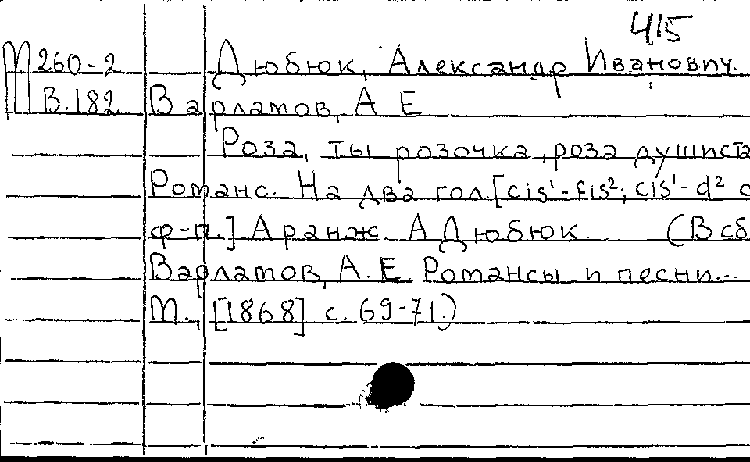 415
М 260-2 Дюбюк, Александр Иванович.
В.182 Варламов, А Е
Роза, ты розочка, роза душиста
Романс. На два гол. [cis¹-fis²; cis¹-d² с
ф-п.] Аранж. А Дюбюк. (В сб
Варламов, А. Е Романсы и песни...
М., [1868] с. 69-71.)